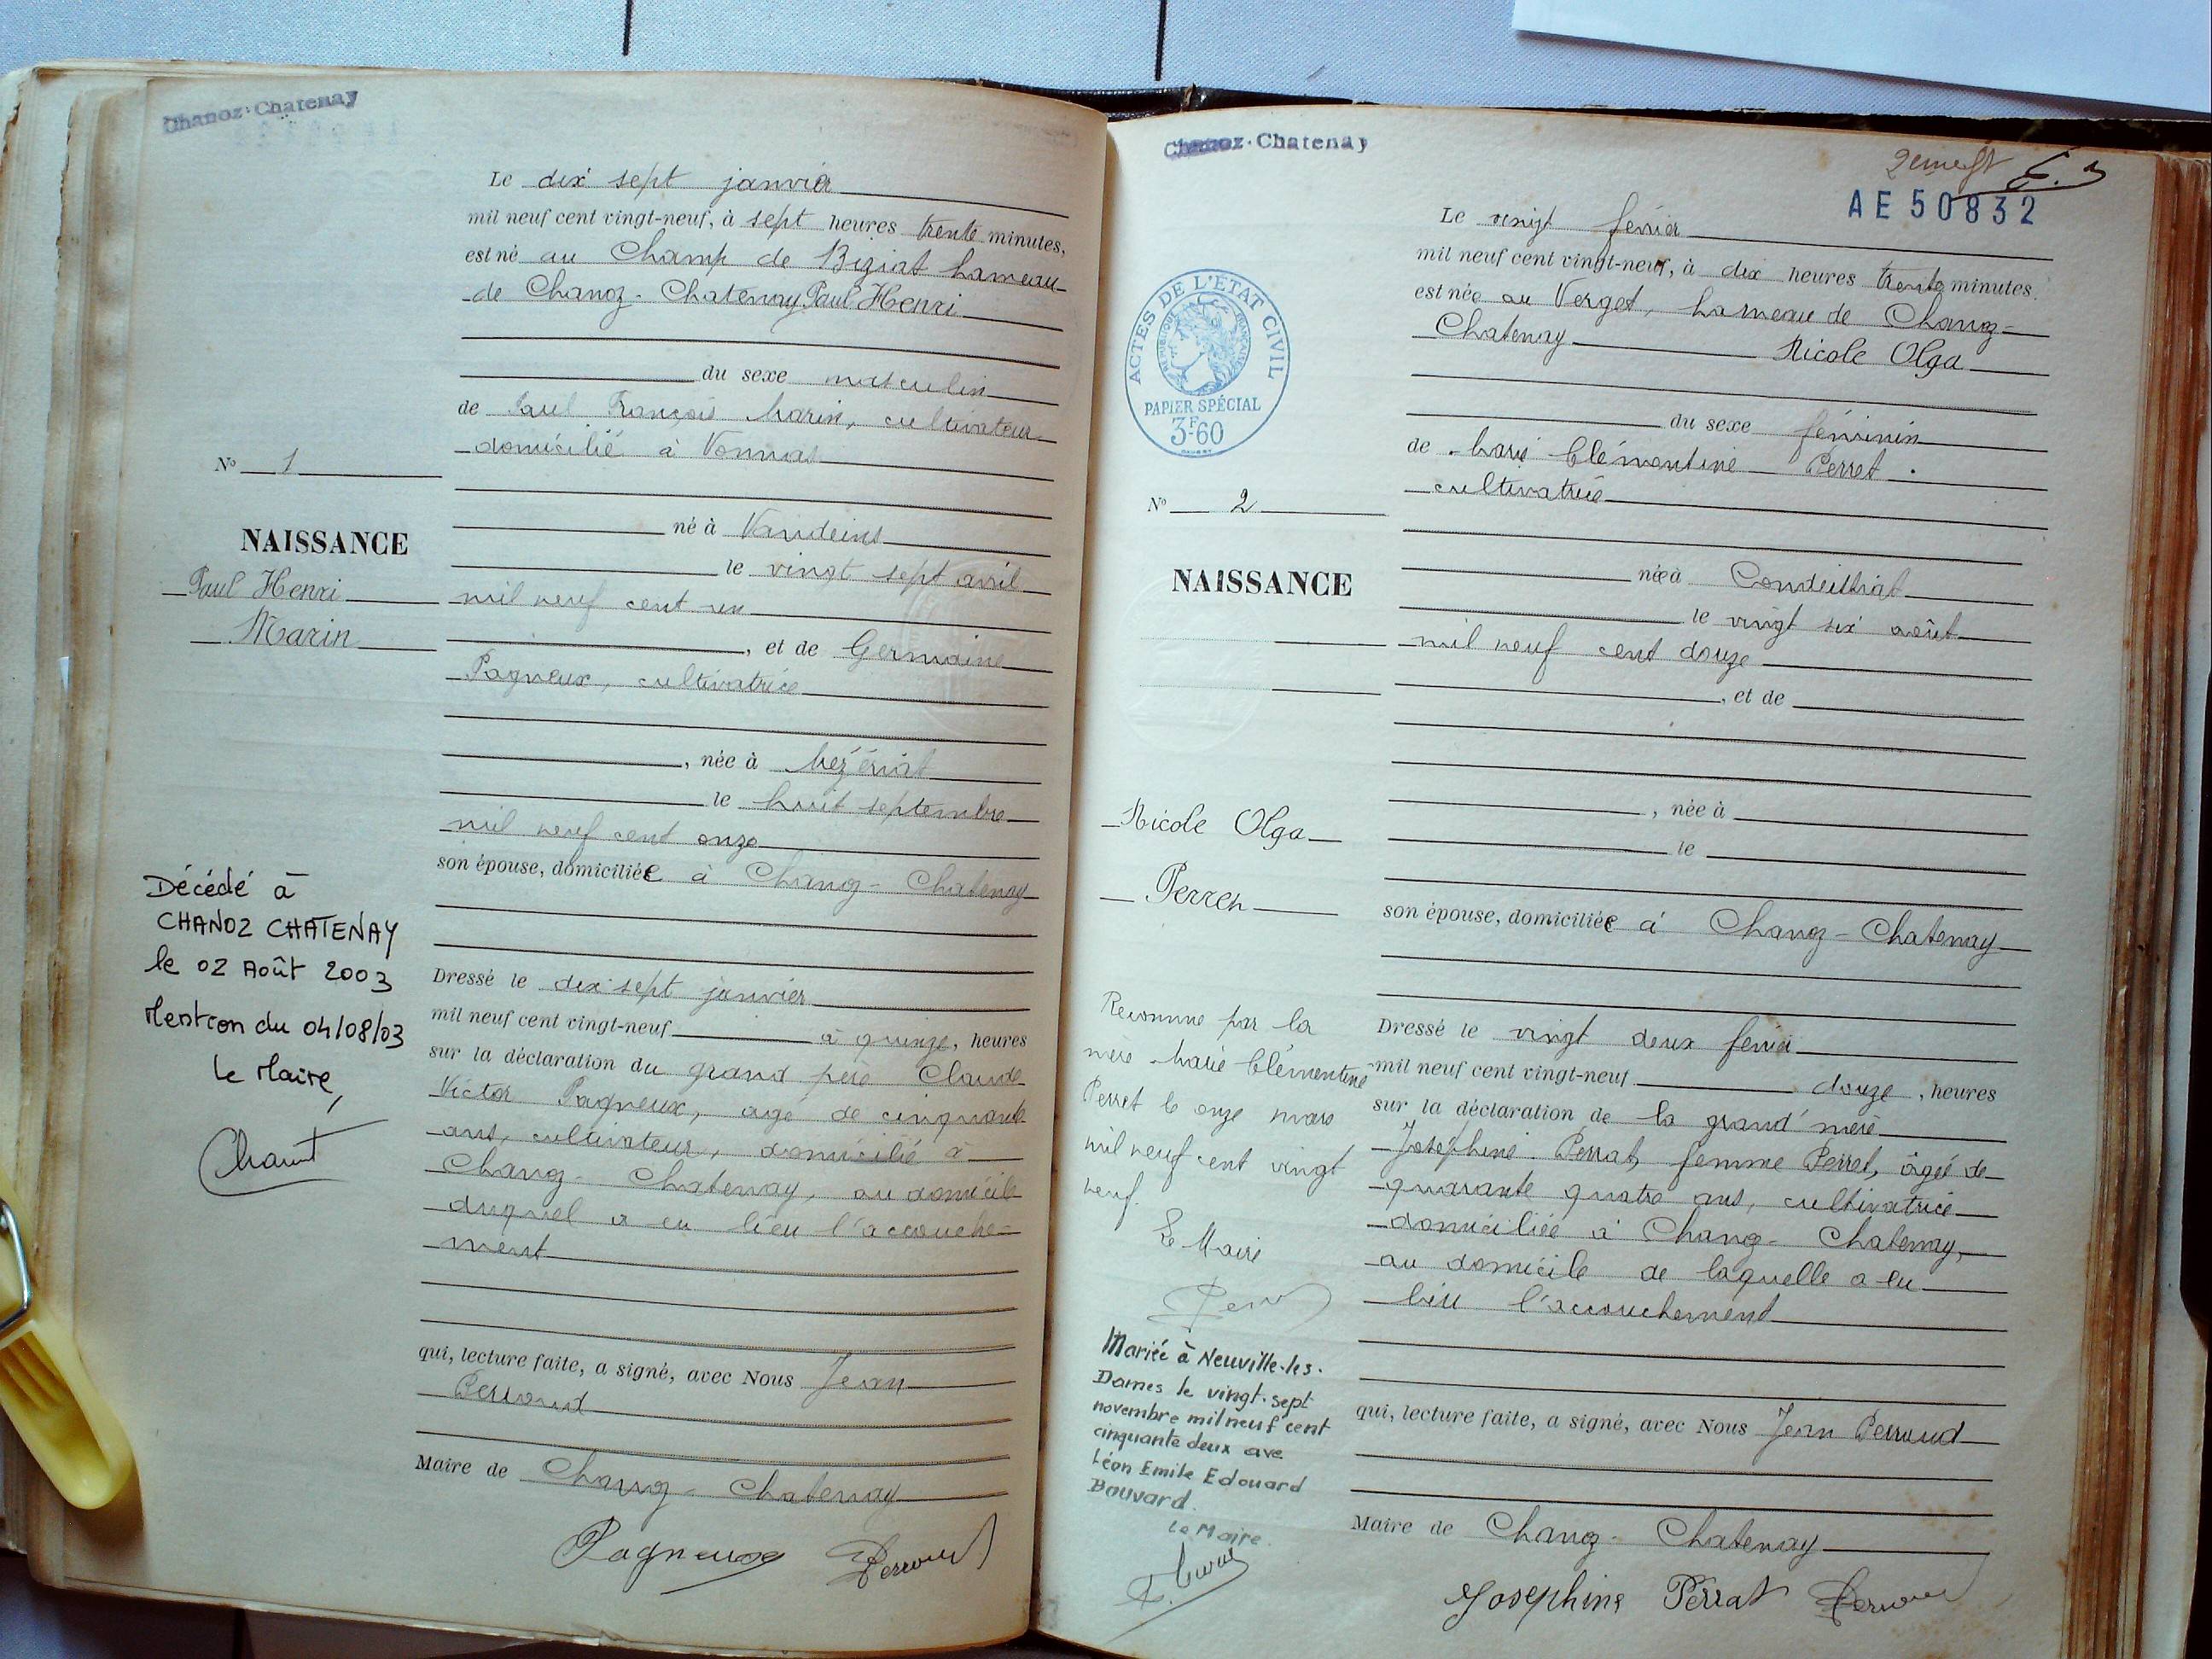 Chanoz-Chatenay
Le dix sept janvier
mil neuf cent vingt-neuf, à sept heures trente minutes,
est né au Champ de Biziat hameau
de Chanoz-Chatenay Paul Henri
du sexe masculin
de Paul François Marin, cultivateur
domicilié à Vonnas
N° 1
né à Vandeins
NAISSANCE
le vingt sept avril
Paul Henri
mil neuf cent un
Marin
, et de Germaine
Pagneux, cultivatrice
, née à Mézériat
le huit septembre
mil neuf cent onze
son épouse, domiciliée à Chanoz-Chatenay
Décédé à
CHANOZ CHATENAY
le 02 Août 2003
Mention du 04/08/03
Le Maire,
Dressé le dix sept janvier
mil neuf cent vingt-neuf à quinze, heures
sur la déclaration du grand père Claude
Victor Pagneux, agé de cinquante
ans, cultivateur, domicilié à
Chanoz-Chatenay, au domicile
duquel a eu lieu l'accouche-
ment
qui, lecture faite, a signé, avec Nous Jean
Perroud
Maire de Chanoz-Chatenay
Pagneux Perroud
Chanoz-Chatenay
AE 50832
Le vingt février
mil neuf cent vingt-neuf, à dix heures trente minutes.
est née au Verget, hameau de Chanoz-
Chatenay Nicole Olga
ACTES DE L'ÉTAT CIVIL
RÉPUBLIQUE FRANÇAISE
PAPIER SPÉCIAL
3F60
du sexe féminin
de Marie Clémentine Perret.
cultivatrice
N° 2
née à Condeissiat
NAISSANCE
le vingt six août
mil neuf cent douze
, et de
, née à
Nicole Olga
le
Perret
son épouse, domiciliée à Chanoz-Chatenay
Reconnue par la
mère Marie Clémentine
Perret le onze mars
mil neuf cent vingt
neuf.
Le Maire
Mariée à Neuville-les-
Dames le vingt-sept
novembre mil neuf cent
cinquante deux ave
Léon Emile Edouard
Bouvard.
Le Maire.
Dressé le vingt deux février
mil neuf cent vingt-neuf douze, heures
sur la déclaration de la grand'mère
Joséphine Perrat, femme Perret, âgée de
quarante quatre ans, cultivatrice
domiciliée à Chanoz-Chatenay,
au domicile de laquelle a eu
lieu l'accouchement
qui, lecture faite, a signé, avec Nous Jean Perroud
Maire de Chanoz-Chatenay
Josephine Perrat Perroud